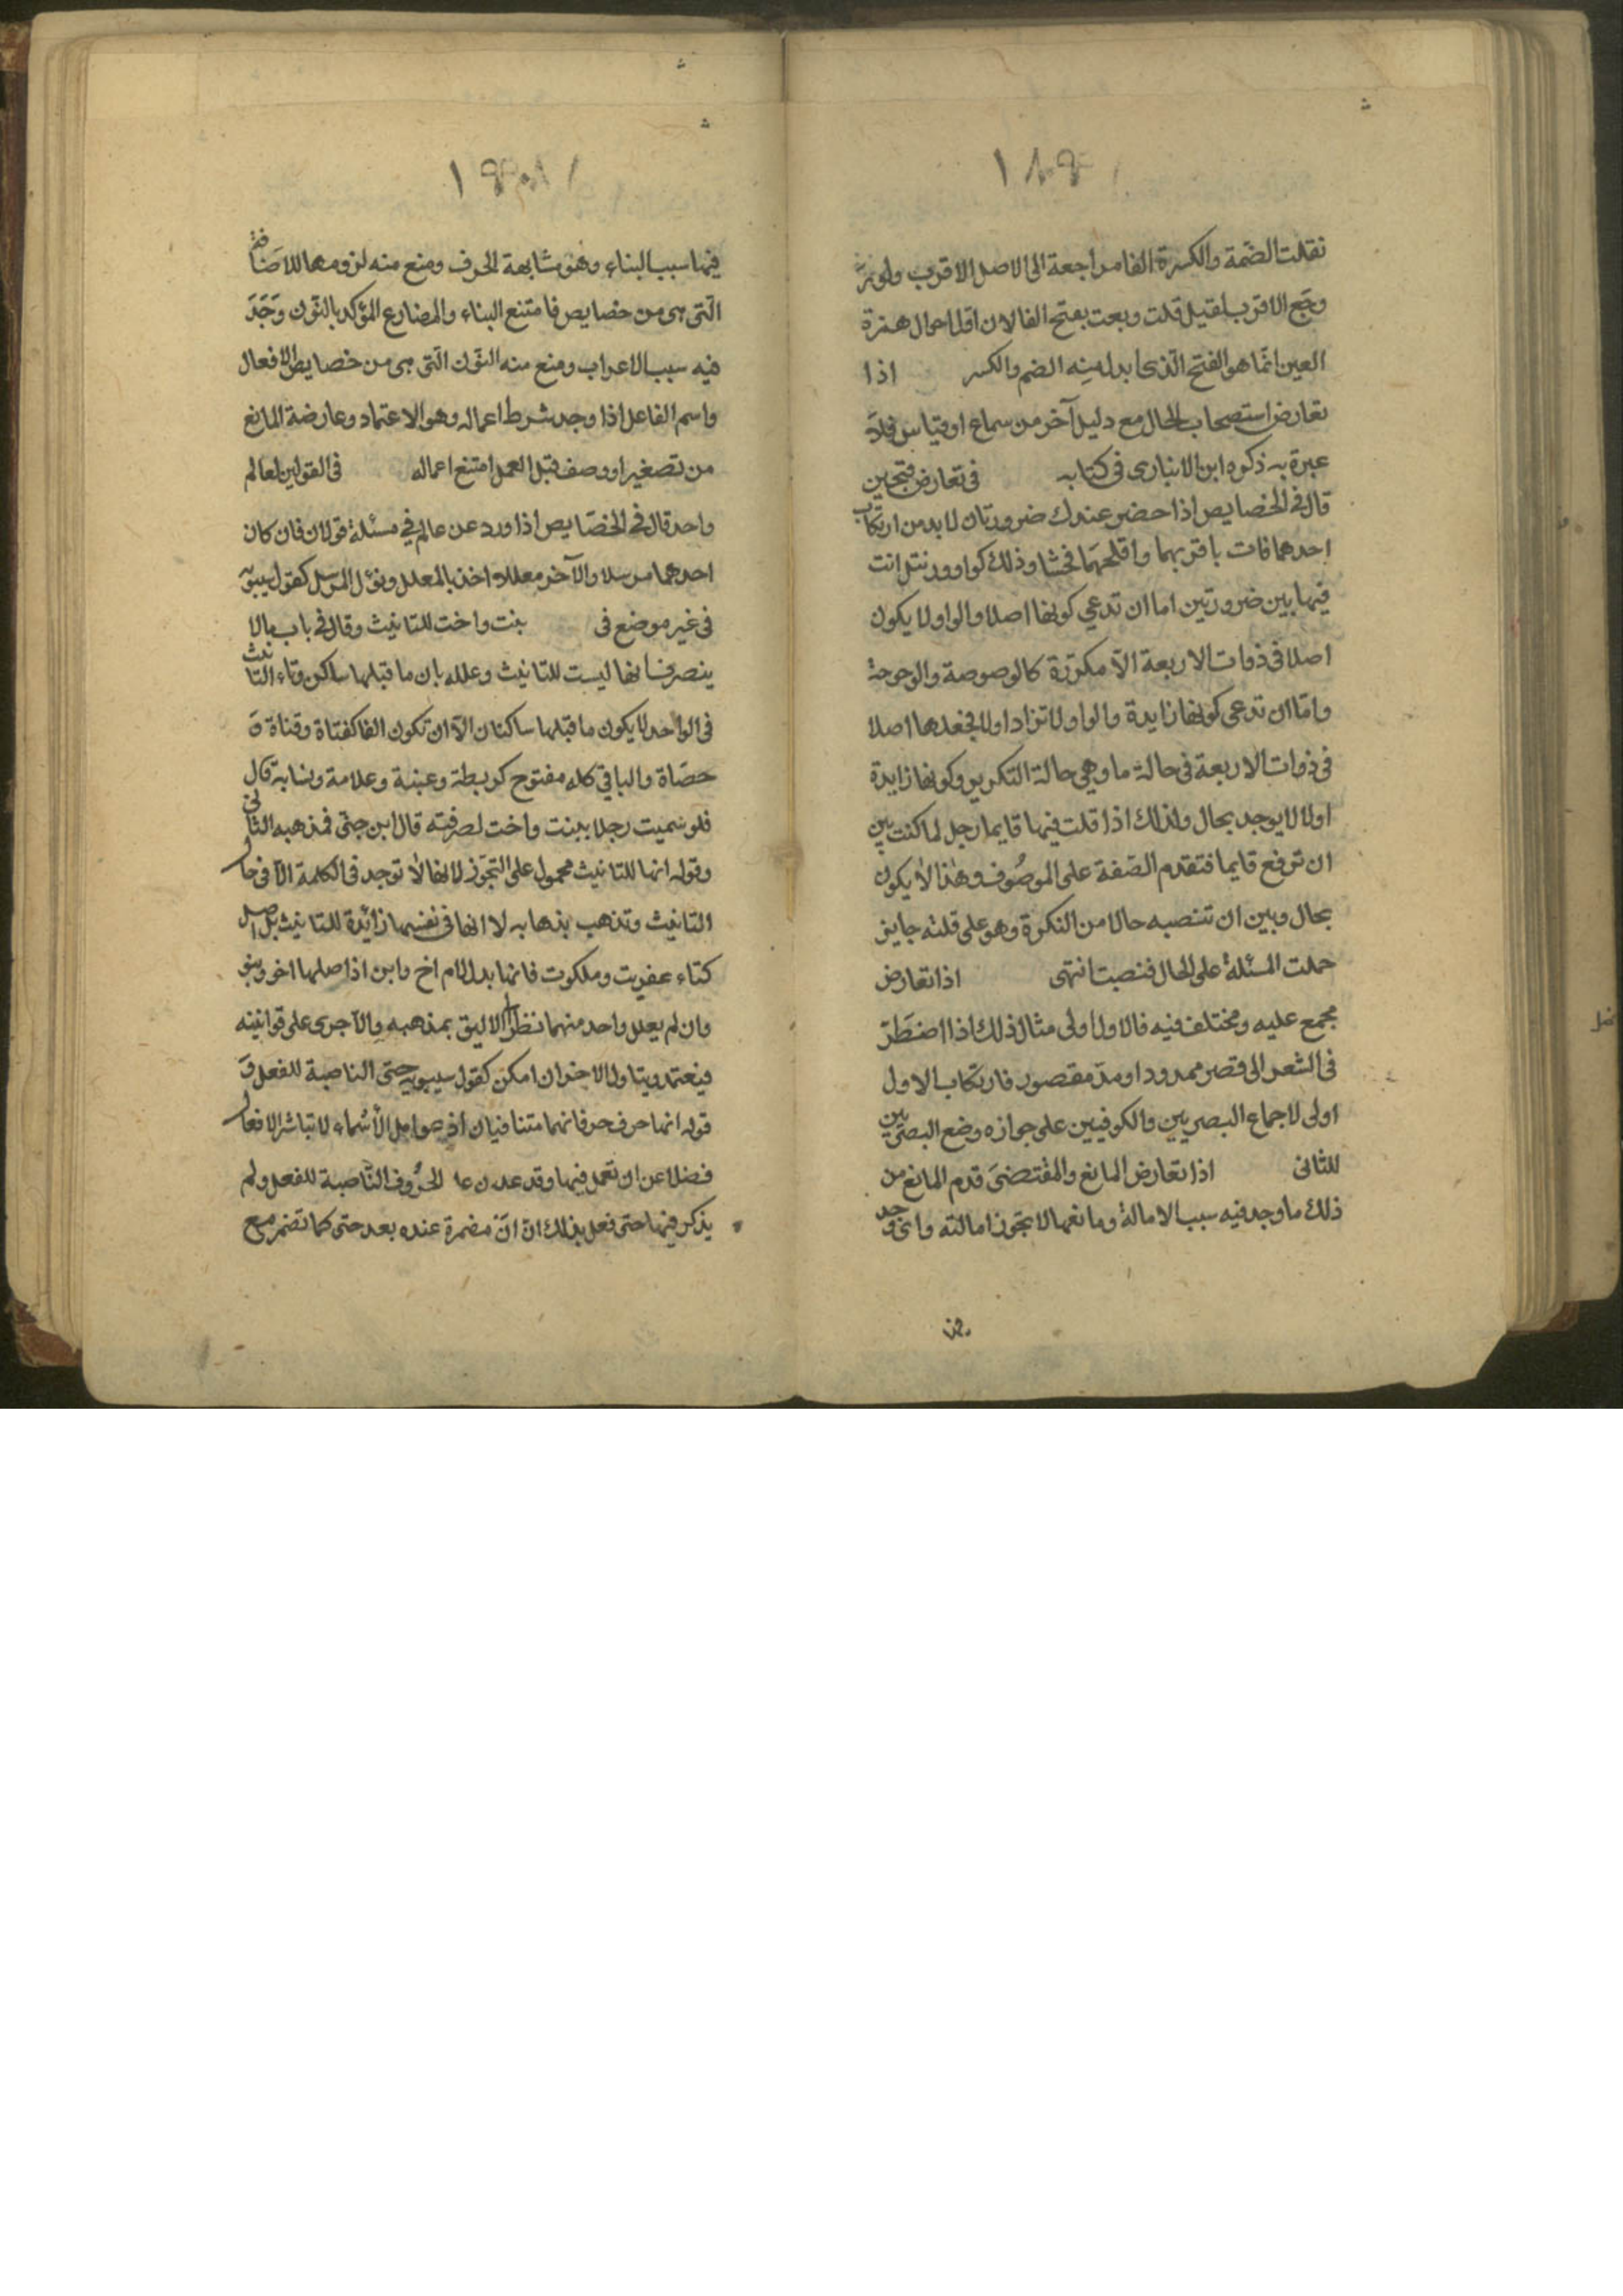 نقلت الضمة والكسرة الفا مراجعة الى الاصل الاقرب ولو تر
وجع الاقرب لقيل قلت وبعت بفتح الفا لان اقل احوال همزة
العين انما هو الفتح الذى ابدل منه الضم والكسر اذا
تعارض استصحاب الحال مع دليل آخر من سماع او قياس فلا
عبرة به ذكره ابن الانبارى فى كتابه فى تعارض قبحين
قال فى الخصايص اذا حضر عندك ضرورتان لا بد من ارتكاب
احدهما فات باقربهما واقلهما فحشا وذلك كواو ورنتل انت
فيها بين ضرورتين اما ان تدعى كونها اصلا والواو لا يكون
اصلا فى ذوات الاربعة الا مكررة كالوصوصة والوحوحة
واما ان تدعى كونها زايدة والواو لا تزاد اولا فجعلها اصلا
فى ذوات الاربعة فى حالة ما وهى حالة التكرير وكونها زايدة
اولا لا يوجد بحال ولذلك اذا قلت فيها قايما رجل لما كنت بين
ان ترفع قايما فتقدم الصفة على الموصوف وهذا لا يكون
بحال وبين ان تنصبه حالا من النكرة وهو على قلته جايز
حملت المسئلة على الحال فنصبت انتهى اذا تعارض
مجمع عليه ومختلف فيه فالاول اولى مثال ذلك اذا اضطر
فى الشعر الى قصر ممدود او مد مقصور فارتكاب الاول
اولى لاجماع البصريين والكوفيين على جوازه ومنع البصريين
للثانى اذا تعارض المانع والمقتضى قدم المانع من
ذلك ما وجد فيه سبب الامالة ومانعها لا يجوز امالته واى وجد
فيها سبب البناء وهو مشابهة الحرف ومنع منه لزومها للاضافة
التى هى من خصايص فامتنع البناء والمضارع المؤكد بالنون وجد
فيه سبب الاعراب ومنع منه النون التى هى من خصايص الافعال
واسم الفاعل اذا وجد شرط اعماله وهو الاعتماد وعارضة المانع
من تصغير او وصف قبل العمل امتنع اعماله فى القولين لعالم
واحد قال فى الخصايص اذا ورد عن عالم فى مسئلة قولان فان كان
احدهما مرسلا والآخر معللا اخذ بالمعلل ويؤل المرسل كقول سيبويه
فى غير موضع فى بنت واخت للتانيث وقال فى باب مالا
ينصرف انها ليست للتانيث وعلله بان ما قبلها ساكن وتاء التانيث
فى الواحد لا يكون ما قبلها ساكنان الا ان تكون الفا كفتاة وقناة و
حصاة والباقى كله مفتوح كربطة وعنبة وعلامة ونسابة قال
فلو سميت رجلا ببنت واخت لصرفته قال ابن جنى فمذهبه الثانى
وقوله انها للتانيث محمول على التجوز لانها لا توجد فى الكلمة الا فى حال
التانيث وتذهب بذهابه لا انها فى نفسها زائدة للتانيث بل اصل
كتاء عفريت وملكوت فانها بدل لام اخ وابن اذ اصلها اخو وبنو
وان لم يعلل واحد منهما نظر الى الاليق بمذهبه والآجرى على قوانينه
فيعتمد ويتاول الاخر ان امكن كقول سيبويه حتى الناصبة للفعل و
قوله انها حرف جر فانهما متنافيان اذ عوامل الاسماء لا تباشر الافعال
فضلا عن ان تعمل فيها وقد عد الحروف الناصبة للفعل ولم
يذكر فيها حتى فعلم بذلك ان ان مضمرة عنده بعد حتى كما تضمر مع